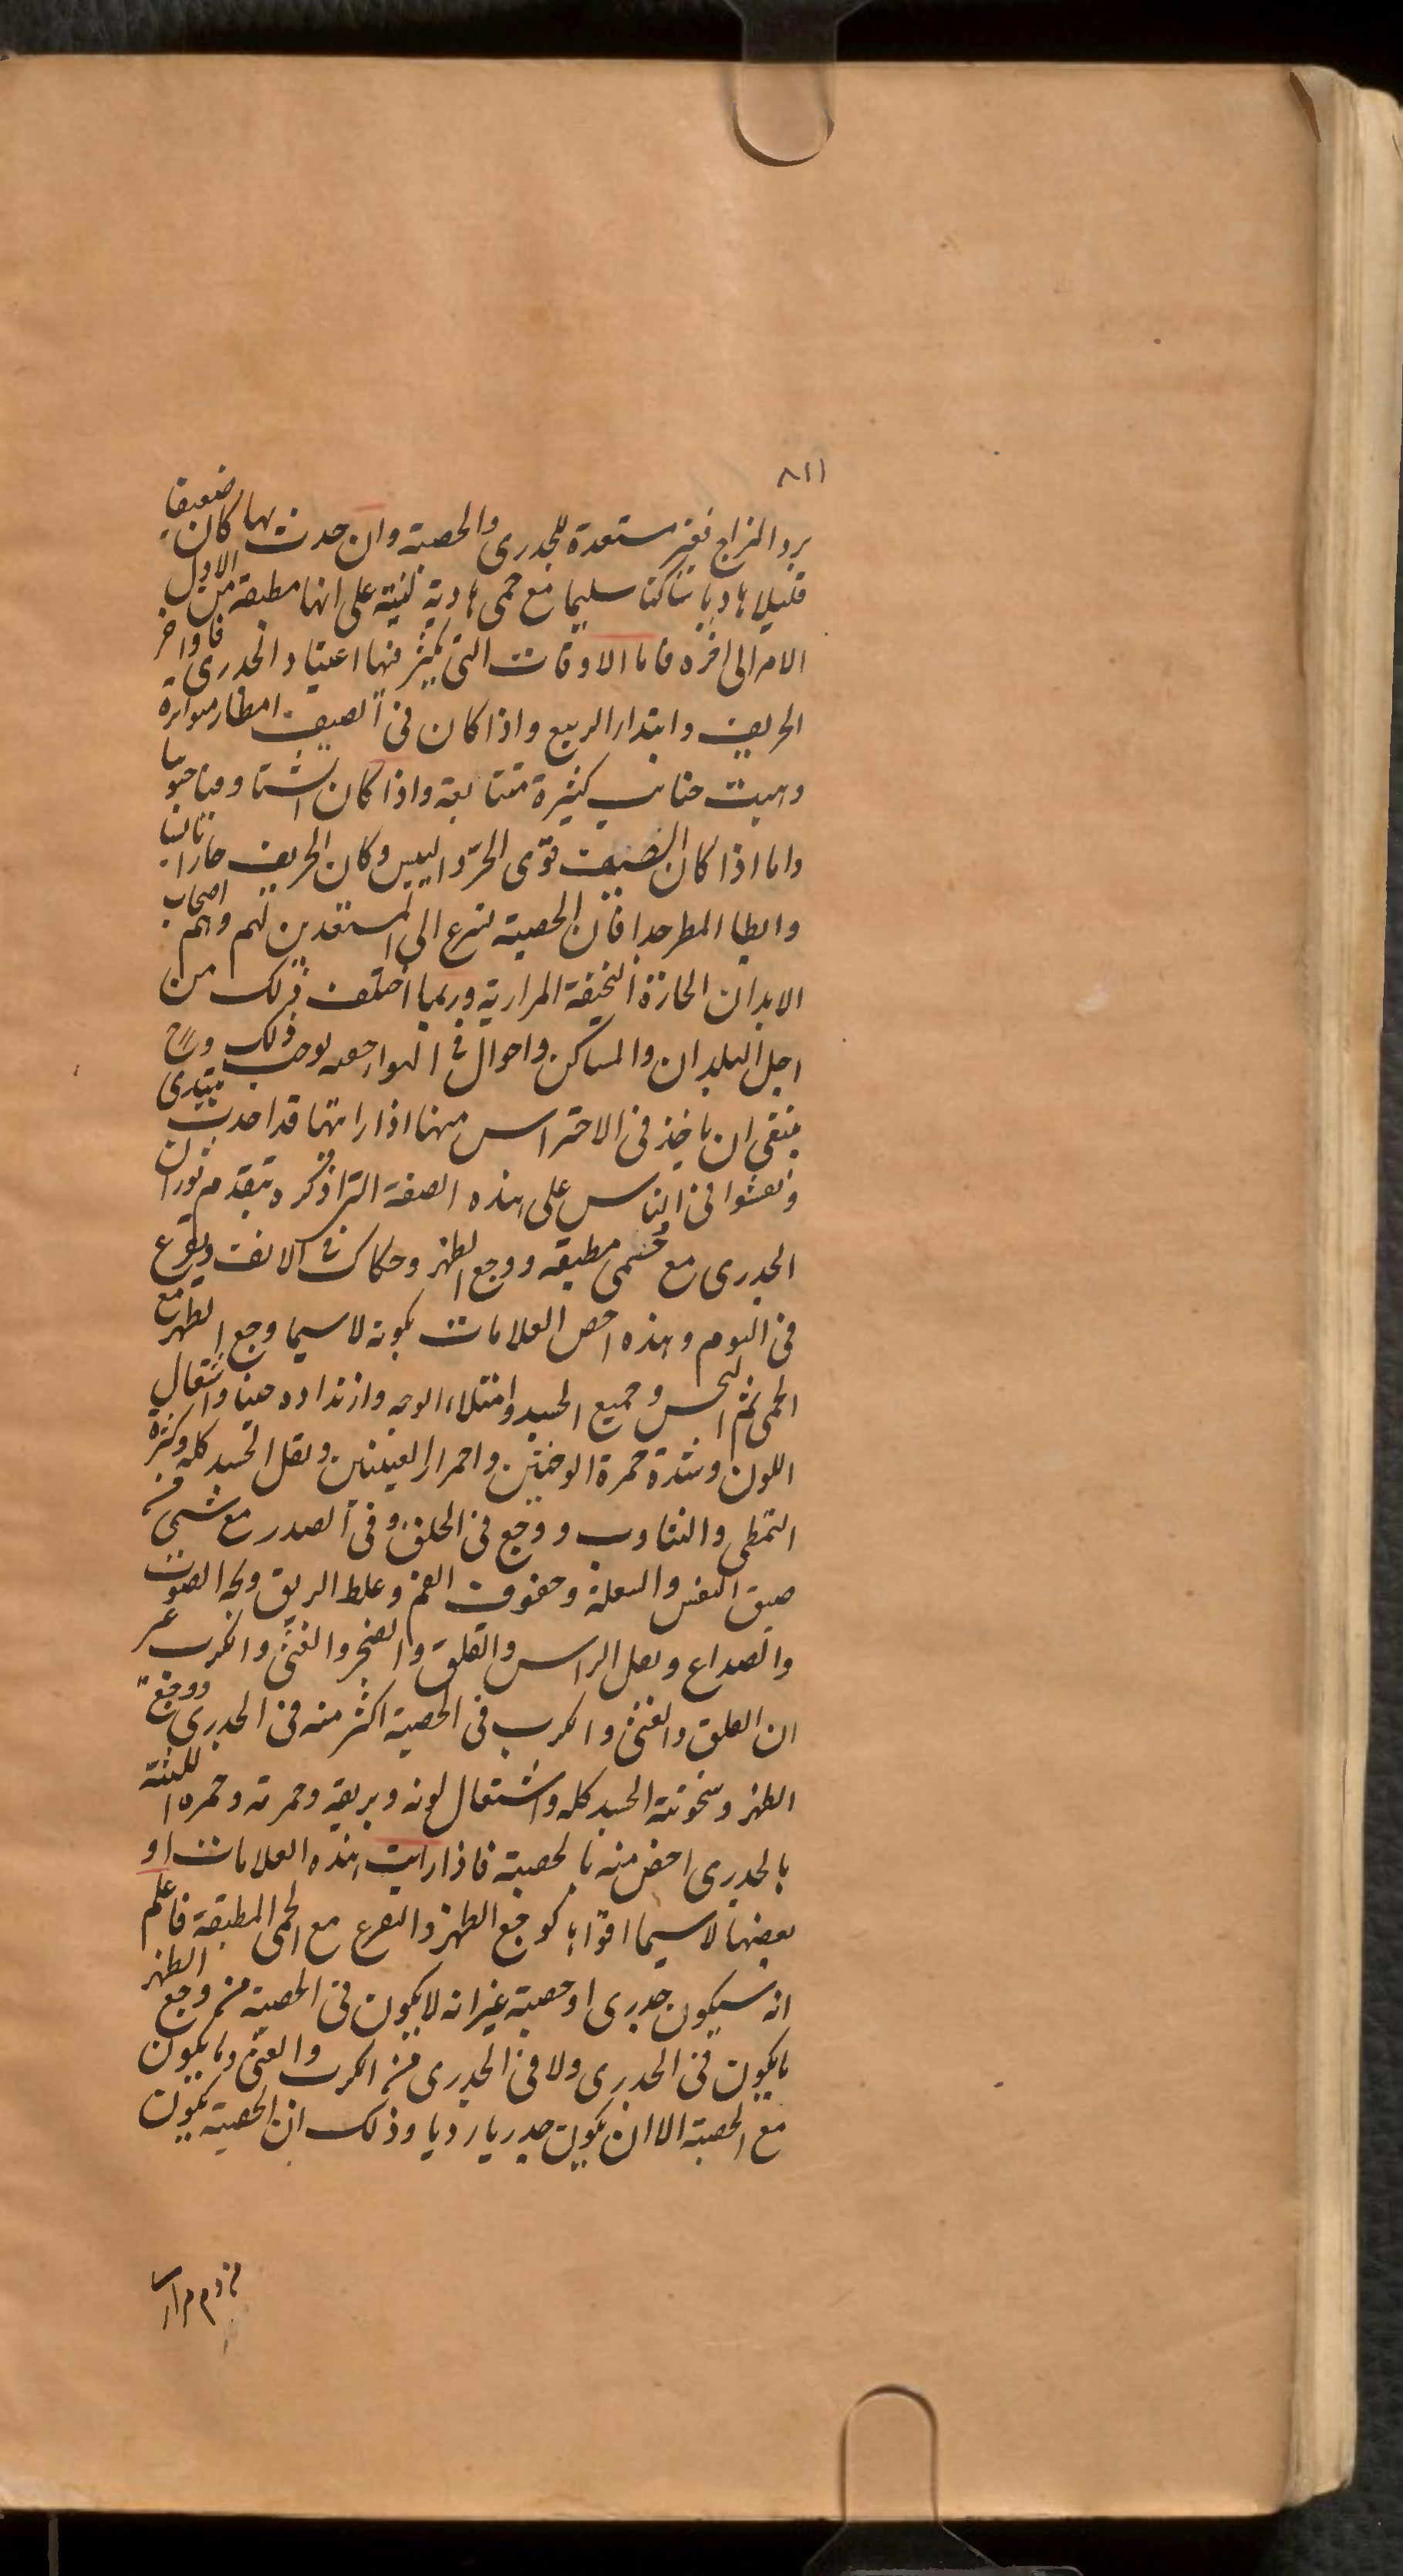 ٨١١
برد المزاج فغير مستعدة للجدرى والحصبة وان حدث بها كان ضعيفا
قليلا هاديا ساكنا سليما مع حمى هادية لينة على انها مطبقة من الاول
الامر الى اخره فاما الاوقات التى يكثر فيها اعتياد الجدرى فاواخر
الخريف وابتدا الربيع واذا كان فى الصيف امطار متواترة
وهبت جنائب كثيرة متتابعة واذا كان الشتا دفيا جنوبيا
واما اذا كان الصيف قوى الحر واليبس وكان الخريف حارا يابسا
وابطا المطر جدا فان الحصبة تسرع الى المستعدين لهم وهم اصحاب
الابدان الحارة النحيفة المرارية وربما اختلف ذلك من
اجل البلدان والمساكن واحوال فى الهوا خفية توجب ذلك وح
ينبغى ان ياخذ فى الاحتراس منها اذا رايتها قد اخذت تبتدى
وتفشوا فى الناس على هذه الصفة التى اذكره يتقدم ثوران
الجدرى مع حمى مطبقة ووجع الظهر وحكاك فى الانف وتفزع
فى النوم وهذه اخص العلامات بكونه لاسيما وجع الظهر مع
الحمى ثم النخس وجميع الجسد وامتلاء الوجه وازنداده حينا واشتعال
اللون وشدة حمرة الوجنتين واحمرار العينين وثقل الجسد كله وكثرة
التمطى والتثاوب ووجع فى الحلق وفى الصدر مع شىء من
ضيق النفس والسعلة وجفوف الفم وغلظ الريق وبحة الصوت
والصداع وثقل الراس والقلق والضجر والغثى والكرب غير
ان القلق والغثى والكرب فى الحصبة اكثر منه فى الجدرى ووجع
الظهر وسخونة الجسد كله واشتعال لونه وبريقه وحمرته وحمرة اللثة
بالجدرى اخص منه بالحصبة فاذا رايت هذه العلامات او
بعضها لاسيما اقواها كوجع الظهر والتفزع مع الحمى المطبقة فاعلم
انه سيكون جدرى او حصبة غير انه لا يكون فى الحصبة من وجع الظهر
ما يكون فى الجدرى ولا فى الجدرى من الكرب والغثى ما يكون
مع الحصبة الا ان يكون جدريا رديا وذلك ان الحصبة يكون